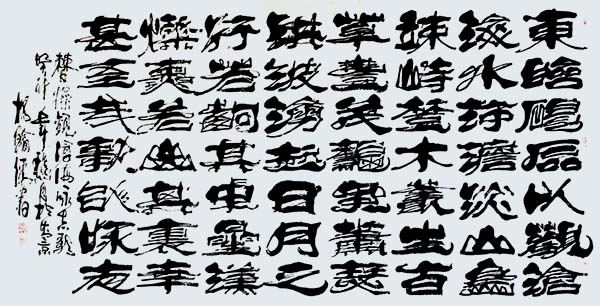 東臨碣石以觀滄
海水何澹澹山島
竦峙樹木叢生百
草豐茂秋風蕭瑟
洪波湧起日月之
行若出其中星漢
燦爛若出其裏幸
甚至哉歌以詠志